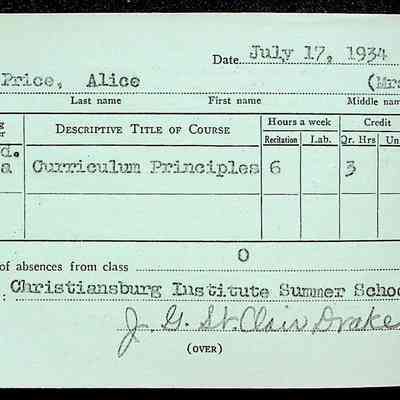 Date July 17, 1934
Price, Alice (Mrs
Last name First name Middle nam
g Descriptive Title of Course Hours a week Credit
er Recitation Lab. Qr. Hrs Un
d.
a Curriculum Principles 6 3
of absences from class 0
: Christiansburg Institute Summer Schoo
J. G. St. Clair Drake
(OVER)